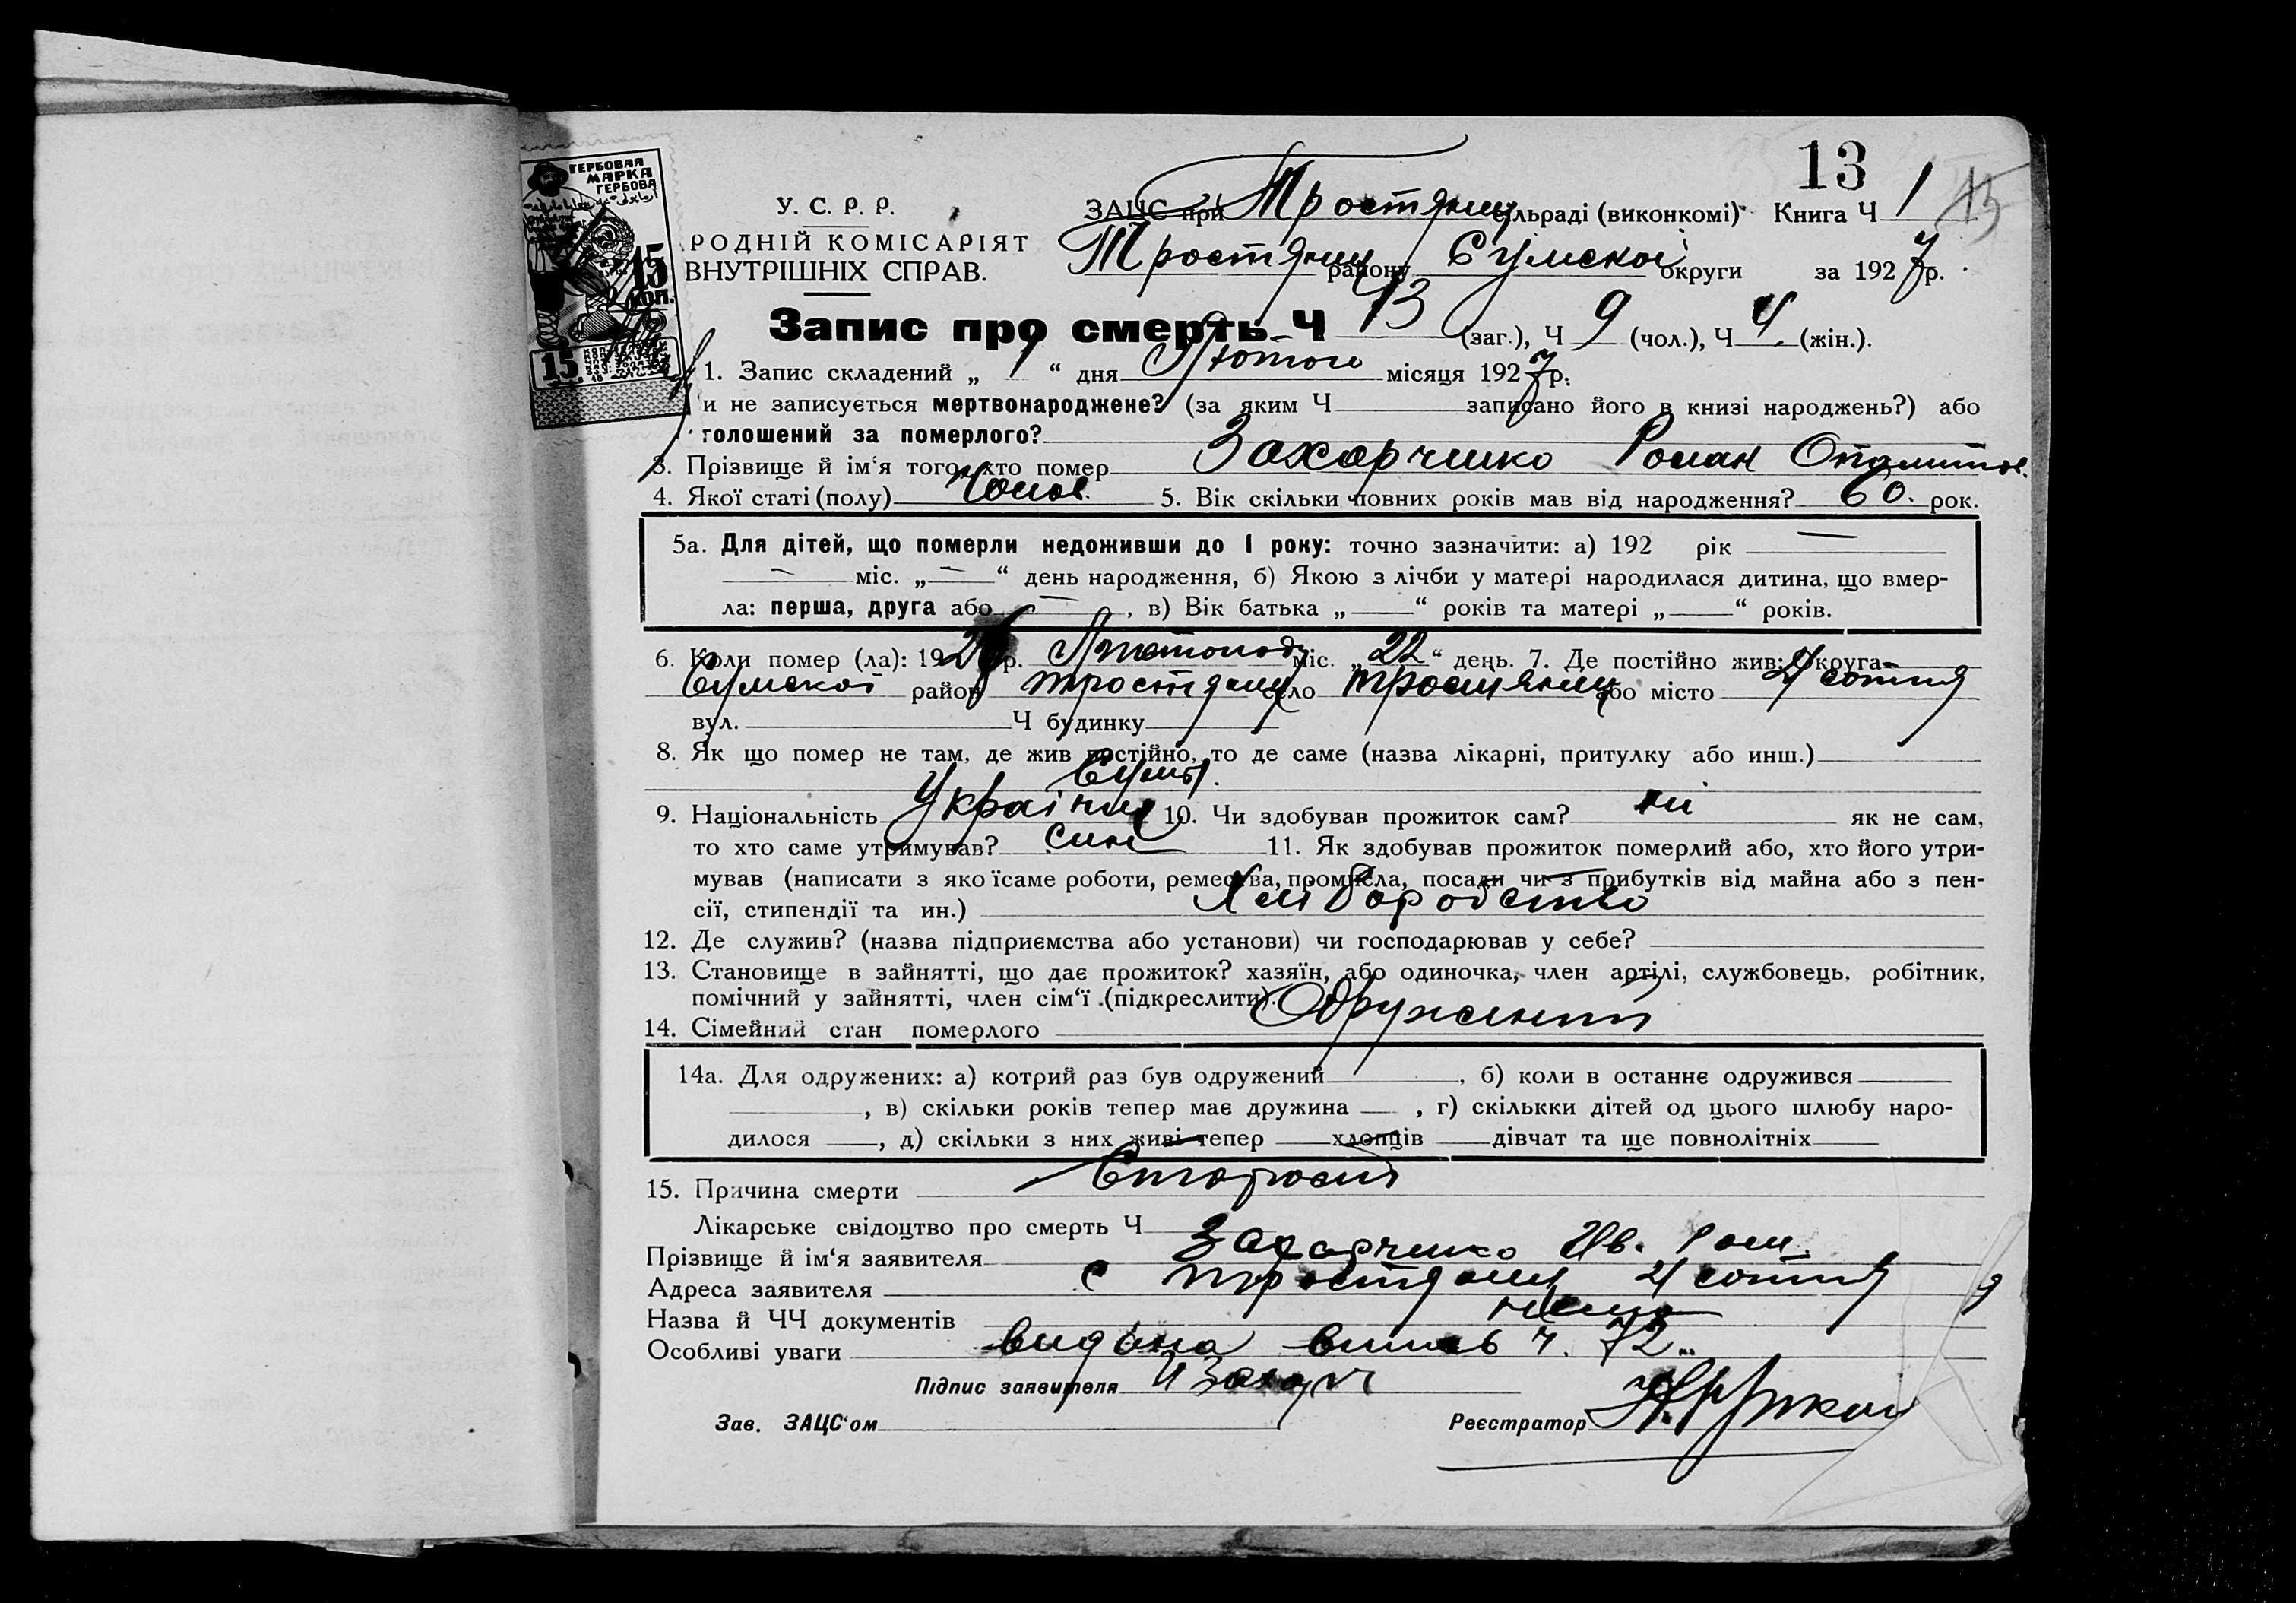 13
ГЕРБОВАЯ
МАРКА
ГЕРБОВА
15
КОП.
15
У. С. Р. Р.
РОДНІЙ КОМІСАРІЯТ
ВНУТРІШНІХ СПРАВ.
ЗАЦС при Тростянец льраді (виконкомі) Книга Ч 1 13
Тростянец району Сумской округи за 1927 р.
Запис про смерть Ч 13 (заг.), Ч 9 (чол.), Ч 4 (жін.).
1. Запис складений „ 1 “ дня Лютого місяця 1927 р.
и не записується мертвонароджене? (за яким Ч записано його в книзі народжень?) або
голошений за померлого?
3. Прізвище й ім‘я того, хто помер Захарченко Роман
4. Якої статі (полу) 5. Вік скільки повних років мав від народження? 60. рок.
5а. Для дітей, що померли недоживши до 1 року: точно зазначити: а) 192 рік —
— міс. „—“ день народження, б) Якою з лічби у матері народилася дитина, що вмер-
ла: перша, друга або —, в) Вік батька „ “ років та матері „ “ років.
6. Коли помер (ла): 1926 р. Листопад міс. „22“ день. 7. Де постійно жив: Округа
Сумской район Тростянец село Тростянец або місто 4 сотня
вул. Ч будинку
8. Як що помер не там, де жив постійно, то де саме (назва лікарні, притулку або инш.)
Сумы.
9. Національність Українец 10. Чи здобував прожиток сам? ні як не сам,
то хто саме утримував? син 11. Як здобував прожиток померлий або, хто його утри-
мував (написати з якоїсаме роботи, ремества, промисла, посади чи з прибутків від майна або з пен-
сії, стипендії та ин.) Хліборобство
12. Де служив? (назва підприємства або установи) чи господарював у себе?
13. Становище в зайнятті, що дає прожиток? хазяїн, або одиночка, член артілі, службовець, робітник,
помічний у зайнятті, член сім‘ї (підкреслити).
14. Сімейний стан померлого Одружений
14а. Для одружених: а) котрий раз був одружений , б) коли в останнє одружився
, в) скільки років тепер має дружина , г) скількки дітей од цього шлюбу наро-
дилося , д) скільки з них живі тепер хлопців дівчат та ще повнолітніх
15. Причина смерти Старость
Лікарське свідоцтво про смерть Ч
Прізвище й ім‘я заявителя Захарченко Ив. Ром.
Адреса заявителя с Тростянец 4 сотня
Назва й ЧЧ документів нема
Особливі уваги видана випись ч. 72
Підпис заявителя И Захарч
Зав. ЗАЦС‘ом Реєстратор